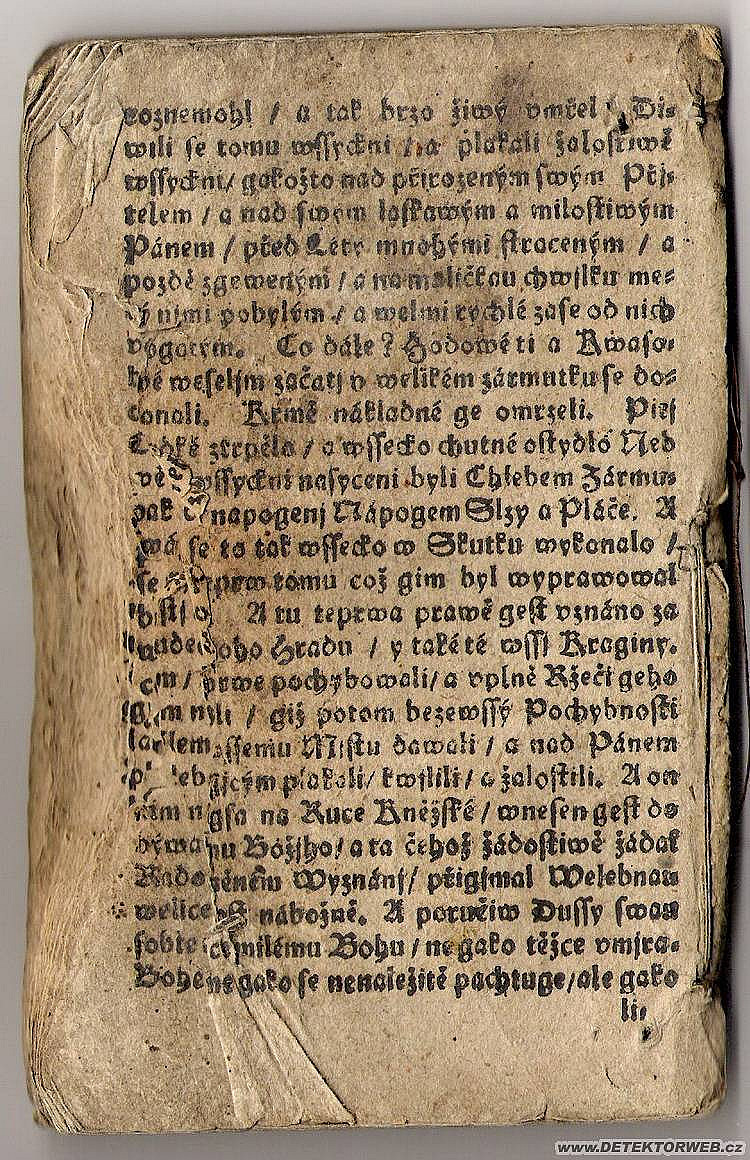 roznemohl / a tak brzo žiwý vmřel / Di-
wili se tomu wssyckni / a plakali žalostiwě
wssyckni / gakožto nad přirozeným swým Přj-
telem / a nad swým laskawým a milostiwým
Pánem / před Léty mnohými straceným / a
pozdě zgeweným / a na maličkau chwilku me-
nimi pobylým / a welmi rychlé zase od nich
wygatým. Co dále? Hodowé ti a Kwaso-
wé weseljm začatj v welikém zármutku se do-
konali. Krmě nákladné ge omrzeli. Pitj
ztrpělo / a wssecko chutné ostydlo Neb
wssyckni nasyceni byli Chlebem Zármu-
napogenj Nápogem Slzy a Pláče. A
se to tak wssecko w Skutku wykonalo /
se tomu což gim byl wyprawowal
A tu teprwa prawě gest vznáno za
Hradu / y také té wssj Kraginy.
prwe pochybowali / a vplně Ržeči geho
/ giž potom bezewssý Pochybnosti
Mistu dawali / a nad Pánem
plakali / kwjlili / a žalostili. A on
na Ruce Kněžské / wnesen gest do
Božjho / a ta čehož žádostiwě žádal
Wyznánj / přigjmal Welebnau
nábožně. A poručiw Dussy swau
milému Bohu / ne gako těžce vmjra-
ne gako se nenáležitě pachtuge / ale gako
li-
www.DETEKTORWEB.cz